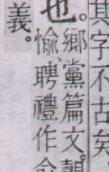 其字不古矣
也。
鄉黨篇文。
愉聘禮作
義。